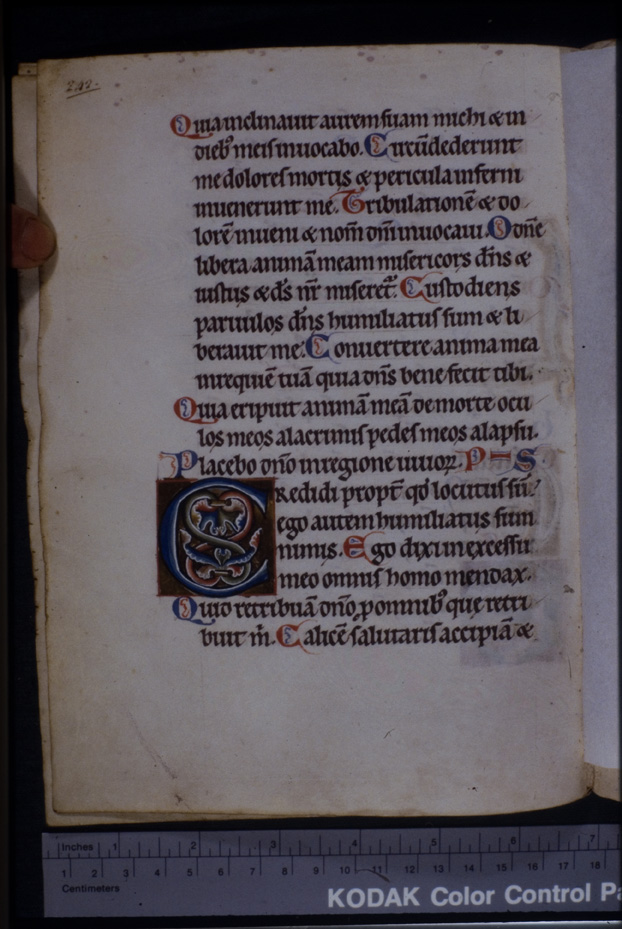 242.
Quia inclinauit aurem suam michi & in
dieb; meis inuocabo. Circūdederunt
me dolores mortis & pericula inferni
inuenerunt me. Tribulationē & do
lorē inueni & nom̄ dn̄i inuocaui. O dn̄e
libera animā meam misericors dn̄s &
iustus & d̄s nr̄ miseret᷑. Custodiens
paruulos dn̄s humiliatus sum & li
berauit me. Conuertere anima mea
in requiē tuā quia dn̄s bene fecit tibi.
Quia eripuit animā meā de morte ocu
los meos a lacrimis pedes meos a lapsu.
Placebo dn̄o in regione uiuoꝝ. P S
Credidi propt̄ qd̄ locutus sū.
ego autem humiliatus sum
nimis. Ego dixi in excessu
meo omnis homo mendax.
Quid retribuā dn̄o, p omnib; que retri
buit m̄. Calicē salutaris accipiā &
Inches 1 2 3 4 5 6 7
1 2 3 4 5 6 7 8 9 10 11 12 13 14 15 16 17 18
Centimeters
KODAK Color Control Pa